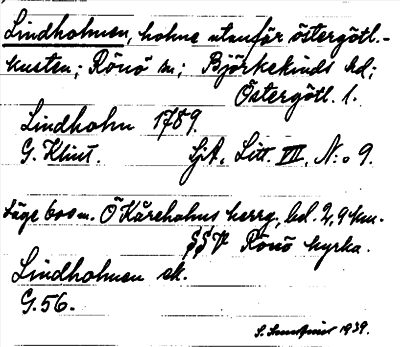 Lindholmen, holme utanför östergötl.-
kusten; Rönö sn; Björkekinds hd;
Östergötl. l.
Lindholm 1789.
G. Klint. SjA, Litt. VII, N:o 9.
Läge 600 m. Ö Kåreholms herrg, bel. 2,9 km.
SSV Rönö kyrka.
Lindholmen ek.
G. 56.
S. 1939.